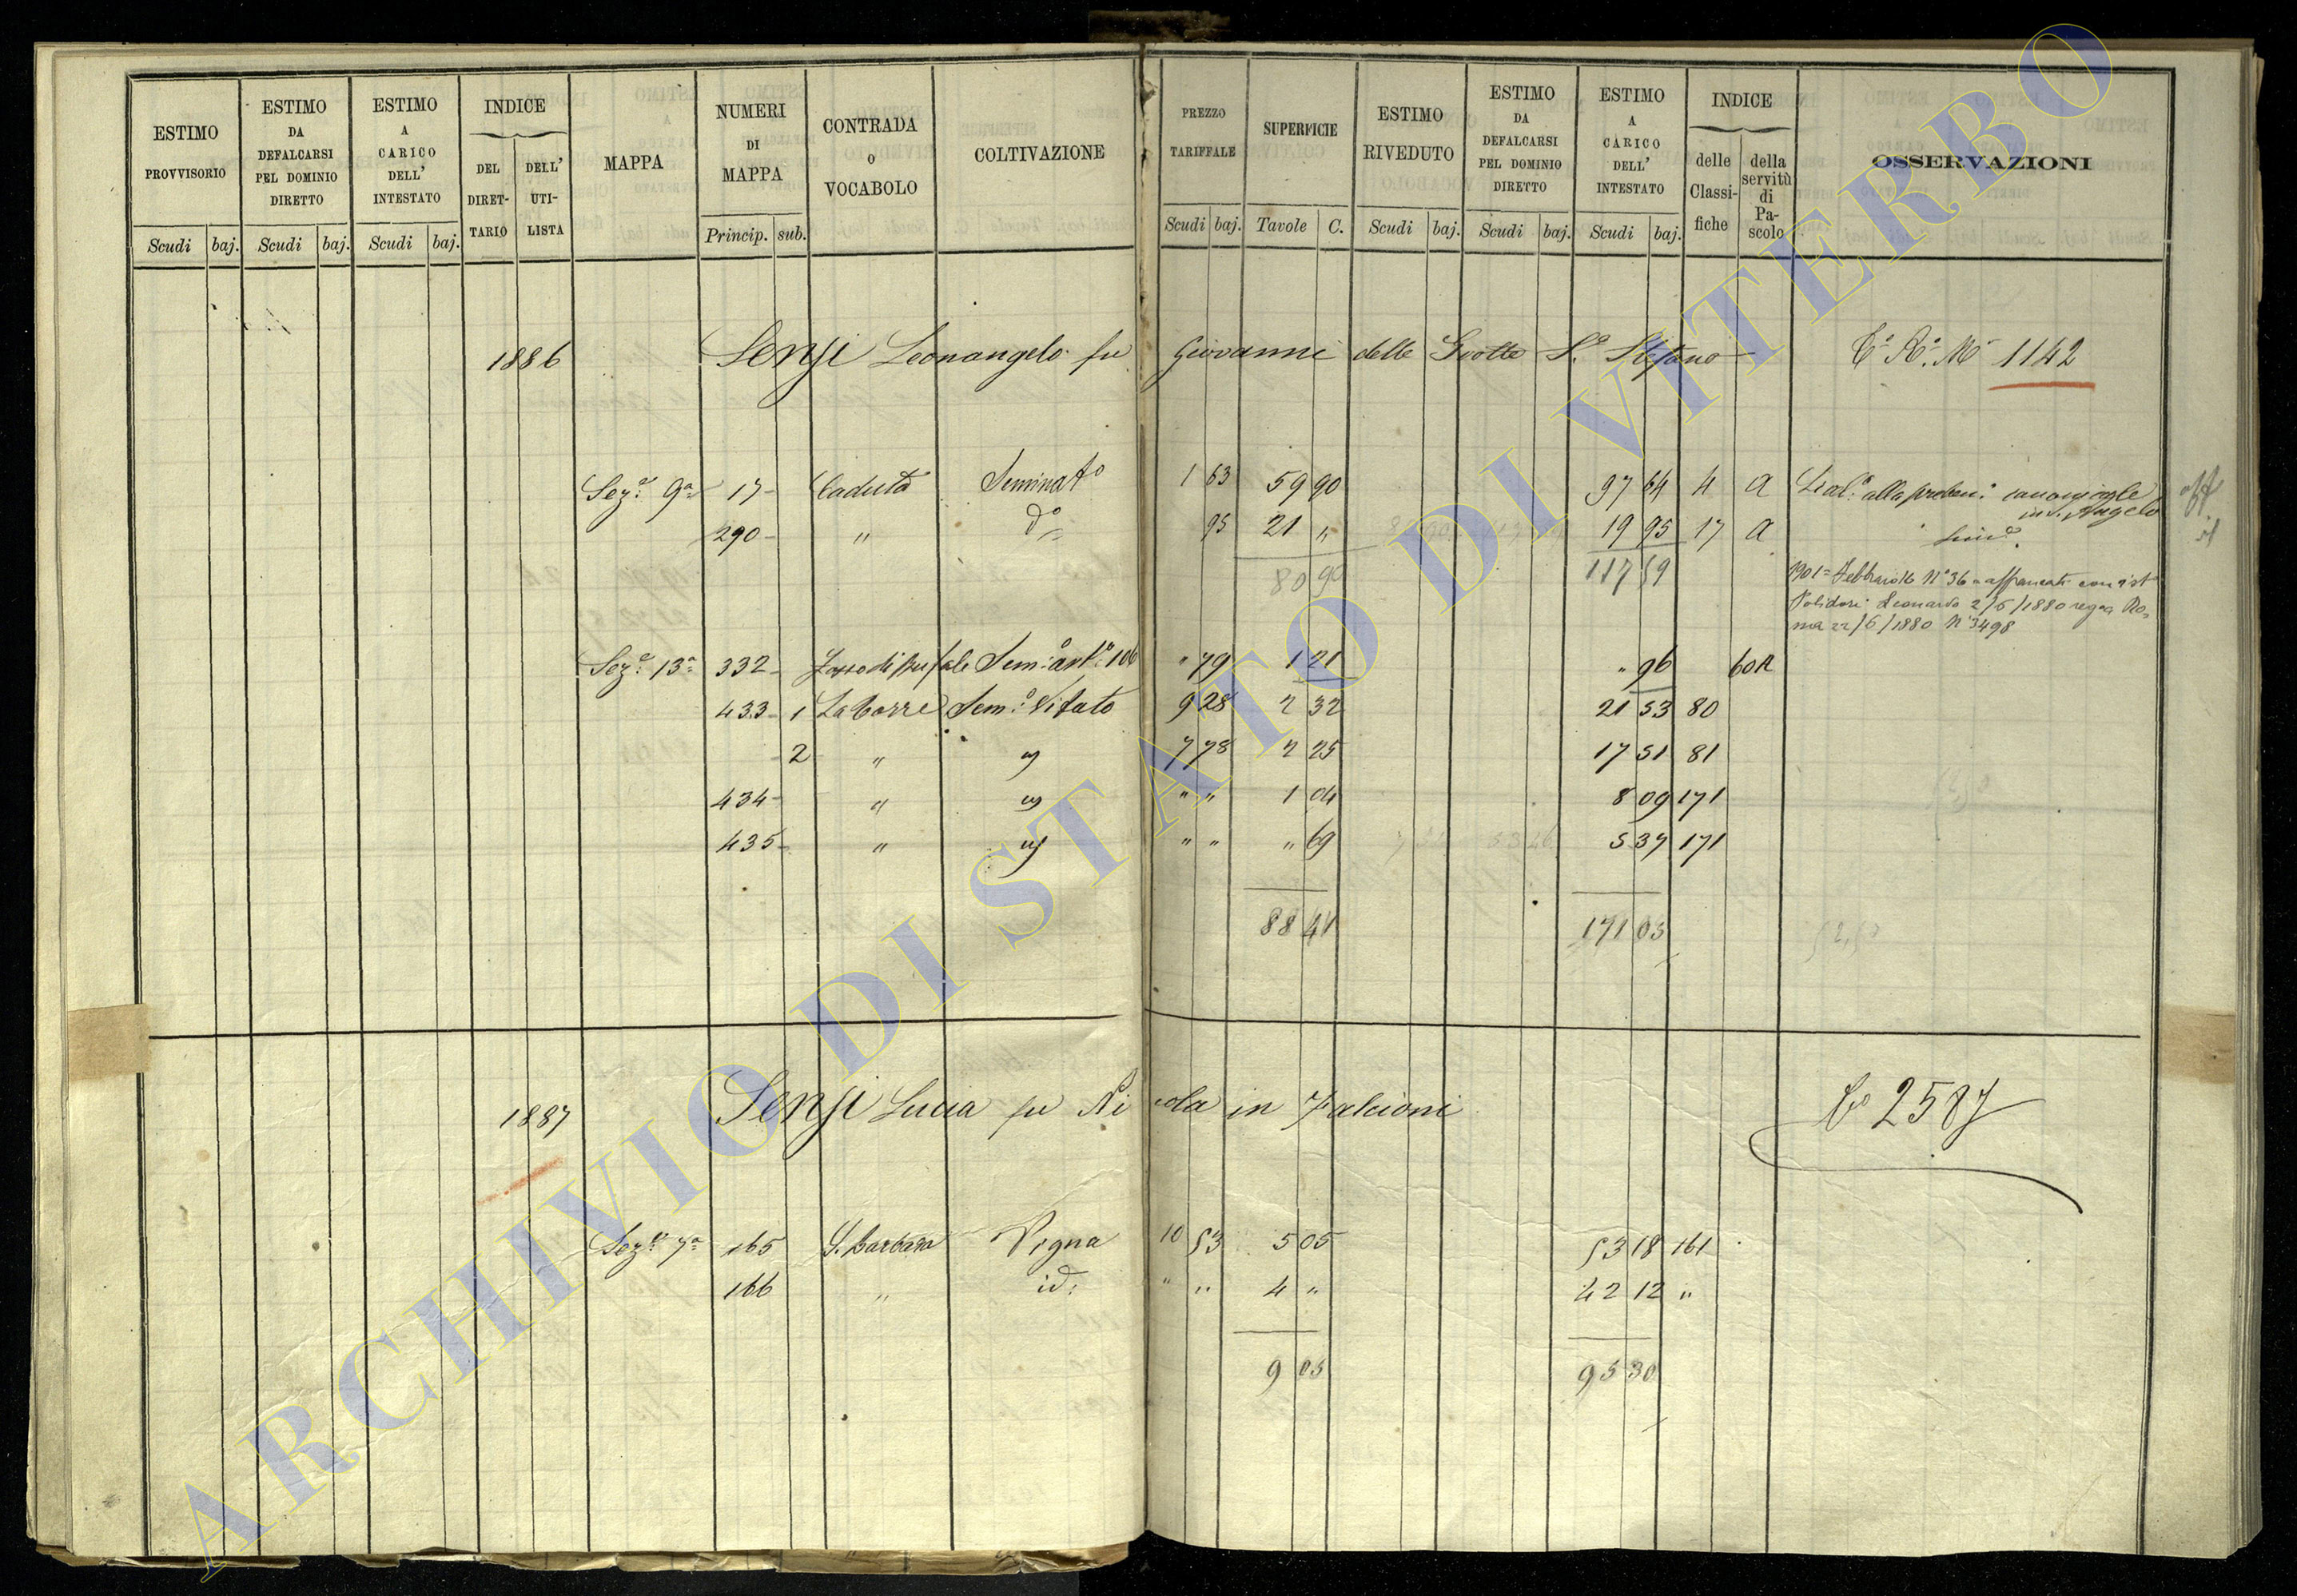 ESTIMO PROVVISORIO Scudi baj.
ESTIMO DA DEFALCARSI PEL DOMINIO DIRETTO Scudi baj.
ESTIMO A CARICO DELL' INTESTATO Scudi baj.
INDICE DEL DIRET- TARIO DELL' UTI- LISTA
MAPPA
NUMERI DI MAPPA Princip. sub.
CONTRADA O VOCABOLO
COLTIVAZIONE
PREZZO TARIFFALE Scudi baj.
SUPERFICIE Tavole C.
ESTIMO RIVEDUTO Scudi baj.
ESTIMO DA DEFALCARSI PEL DOMINIO DIRETTO Scudi baj.
ESTIMO A CARICO DELL' INTESTATO Scudi baj.
INDICE delle Classi- fiche della servitù di Pa- scolo
OSSERVAZIONI
1886 Sensi Leonangelo fu Giovanni delle Grotte S.o Stefano 1142
Sez.e 9a 17 Caduta Seminato 1 63 59 90 97 64 4 A alla canonicale
in S. Angelo
290 " do 95 21 " 19 95 17 A
80 90 117 59
1901 = Febbraio 16 No 36 = con ist
Polidori Leonardo 2/5/1880 Ro=
ma 22/5/1880 No 3498
Sez.e 13a 332 Sem.o " 79 1 21 " 96 60 A
433 1 La Torre Sem.o Vitato 9 28 2 32 21 53 80
2 " " 7 78 2 25 17 51 81
434 " " " " 1 04 8 09 171
435 " " " " " 69 5 37 171
88 41 171 05
1887 Sensi Lucia fu Nicola in Falcioni 2587
Sez.e 7a 165 S. Barbara Vigna 10 53 5 05 53 18 161
166 " id: " " 4 " 42 12 "
9 05 95 30
ARCHIVIO DI STATO DI VITERBO